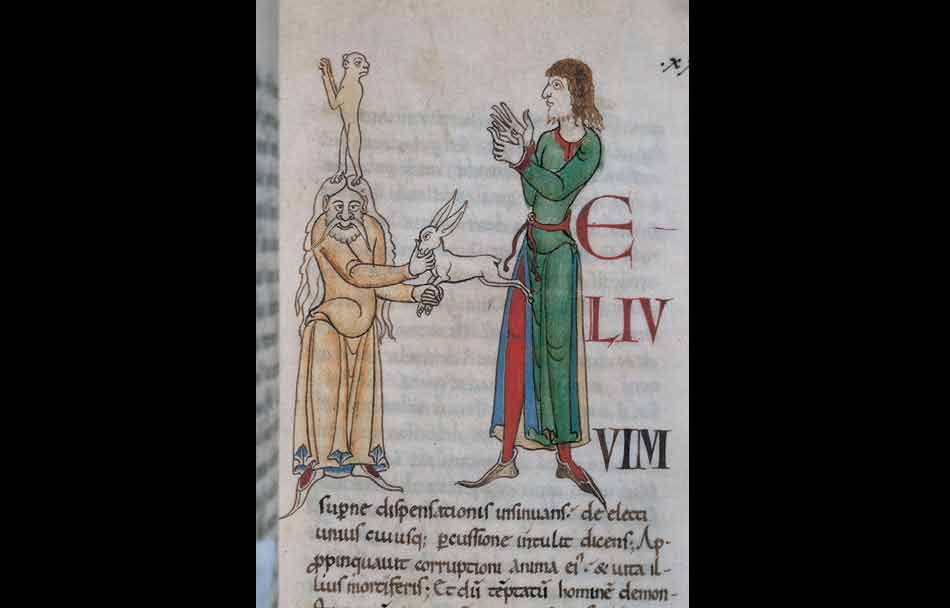 .xx
E-
LIV
VIM
suꝑne dispensationis insinuans. de electi
unius cuiusq; ꝑcussione intulit dicens; Ap-
ꝓpinquauit corruptioni anima ei'. & uita il-
lius mortiferis; Et dū tēptatū hominē demon-